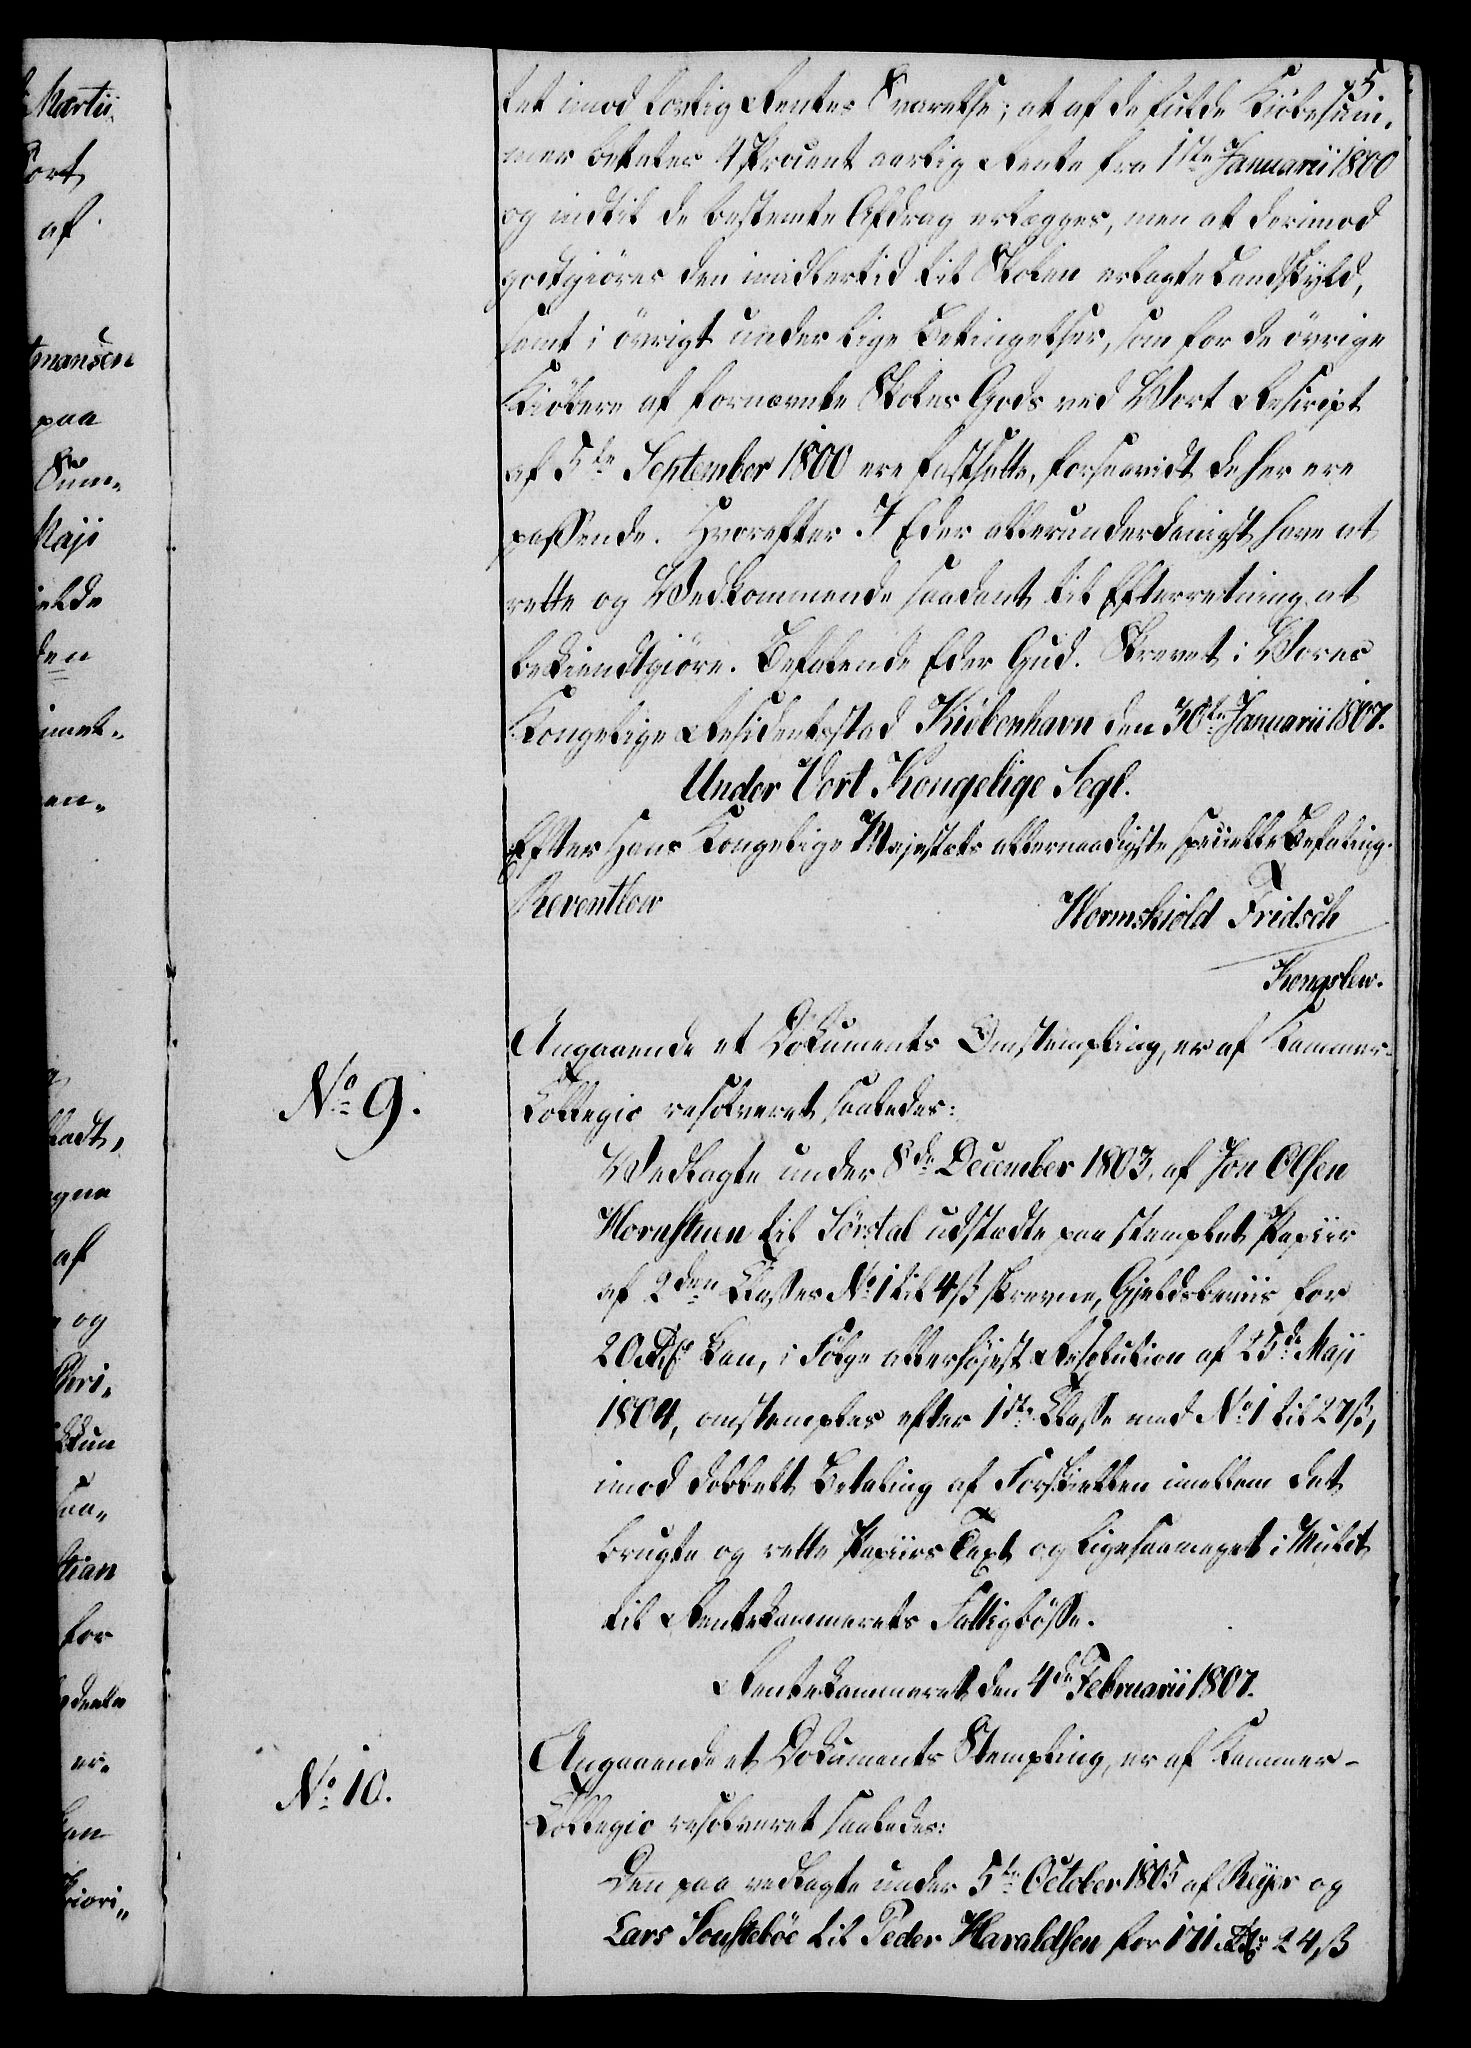 5
tet imod lovlig Rentes Svarelse; at af de fulde Kiöbesum„
mer betales 4 Procent aarlig Rente fra 1ste Januarii 1800
og indtil de bestemte Afdrag erlægges, men at derimod
godtgiöres den imidlertid til Skolen erlagte Landskyld,
samt i övrigt under lige Betingelser, som for de övrige
Kiöbere af fornævnte Skoles Gods ved Vort Rescript
af 5te September 1800 ere fastsatte, forsaavidt de her ere
passende. Hvorefter I Eder allerunderdanigst have at
rette og Vedkommende saadant til Efterretning at
bekiendtgiöre. Befalende Eder Gud. Skrevet i Vores
Kongelige Residentsstad Kiöbenhavn den 30te Januarii 1807.
Under Vort Kongelige Segl.
Efter Hans Kongelige Majestæts allernaadigste specielle Befaling.
Reventlow
Wormskiold Fridsch
Kongslew.
No 9.
Angaaende et Dokuments Omstempling, er af Kammer-
Collegio resolveret saaledes:
Vedlagte under 8de December 1803, af Jon Olsen
Hornstuen til Sörstal udstædte paa stemplet Papiir
af 2den Classes No 1 til 4 ß skrevne, Gjeldsbeviis for
20 Rd. kan, i Fölge allerhöjest Resolution af 25de Maji
1804, omstemples efter 1ste Classe med No 1 til 27 ß,
imod dobbelt Betaling af Forskiellen imellem det
brugte og rette Papiirs Taxt og ligesaameget i Mulct
til Rentekammerets Fattigbösse.
Rentekammeret den 4de Februarii 1807.
No 10.
Angaaende et Dokuments Stempling, er af Kammer-
Collegio resolveret saaledes:
Den paa vedlagte under 5te October 1805 af Reijer og
Lars Soustebøe til Peder Haraldsen for 171 Rd 24 ß